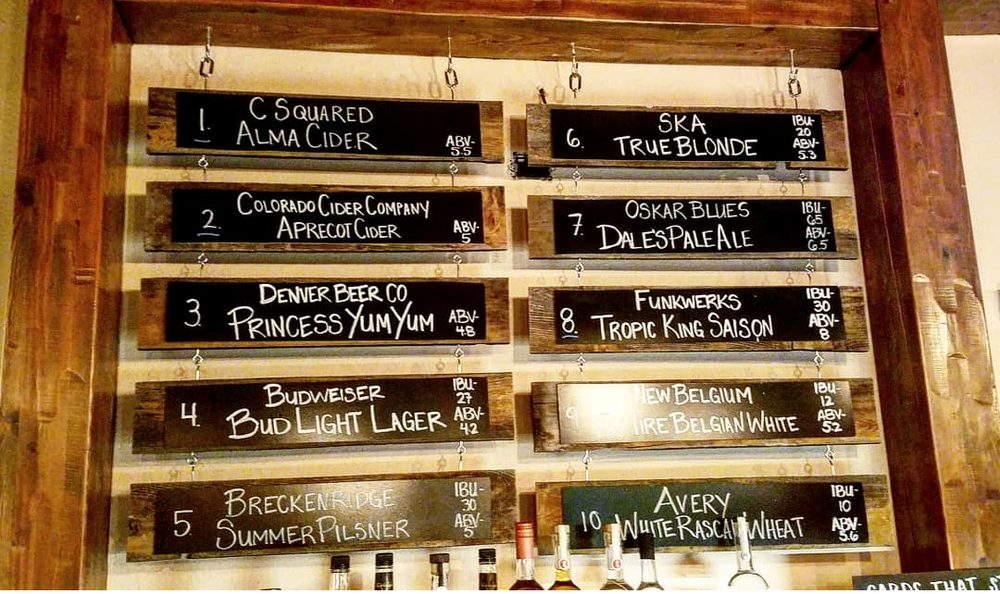 1.
C SQUARED
ALMA CIDER
ABV-
5.5
2.
COLORADO CIDER COMPANY
APRECOT CIDER
ABV-
5
3.
DENVER BEER CO
PRINCESS YUM YUM
ABV-
4.8
4.
BUDWEISER
BUD LIGHT LAGER
IBU-
27
ABV-
4.2
5.
BRECKENRIDGE
SUMMER PILSNER
IBU-
30
ABV-
5
6.
SKA
TRUE BLONDE
IBU-
20
ABV-
5.3
7.
OSKAR BLUES
DALE'S PALE ALE
IBU-
65
ABV-
6.5
8.
FUNKWERKS
TROPIC KING SAISON
IBU-
30
ABV-
8
9
NEW BELGIUM
BELGIAN WHITE
IBU-
12
ABV-
5.2
10
AVERY
WHITE RASCAL WHEAT
IBU-
10
ABV-
5.6
CARDS THAT